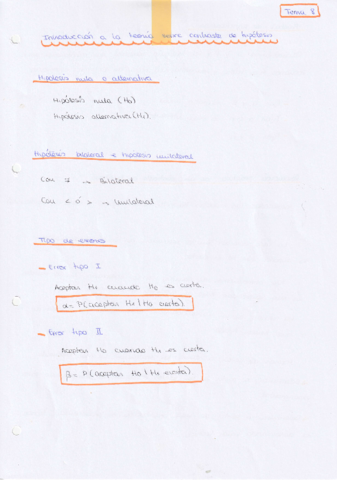 Tema 8
Introducción a la teoría sobre contraste de hipótesis
Hipótesis nula o alternativa
Hipótesis nula (H₀)
Hipótesis alternativa (H₁)
Hipótesis bilateral e hipótesis unilateral
Con ≠ → Bilateral
Con < ó > → Unilateral
Tipo de errores
Error tipo I
Aceptar H₁ cuando H₀ es cierta.
α = P(aceptar H₁ | H₀ cierta)
Error tipo II
Aceptar H₀ cuando H₁ es cierta.
β = P(aceptar H₀ | H₁ cierta)